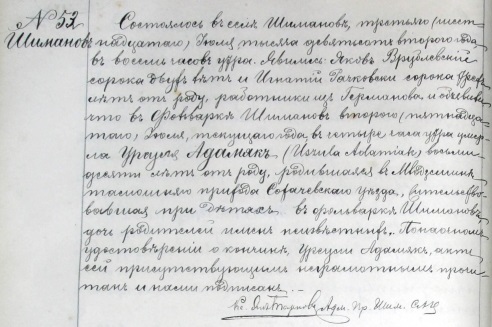 № 52
Шимановъ
Состоялось въ селѣ Шимановѣ, третьяго (шест-
надцатаго) Іюля тысяча девятьсотъ второго года
въ восемь часовъ утра. Явились Яковъ Врублевскій
сорока двухъ лѣтъ и Игнатій Рачковскі сорока трехъ
лѣтъ отъ роду, работники изъ Германова и объявили
что въ Фольваркѣ Шимановъ второго (пятнадца-
таго) Іюля, текущаго года, въ четыре часа утра умер-
ла Урсуля Адамякъ (Urszula Adamiak) восьми-
десяти лѣтъ отъ роду, родившаяся въ
тамошняго прихода Сохачевскаго уѣзда, жительство-
вавшая при дѣтяхъ въ фольваркѣ Шимановъ
дочь родителей именъ неизвѣстныхъ. По настоящемъ
удостовѣреніи о кончинѣ, Урсули Адамякъ, актъ
сей присутствующимъ неграмотнымъ прочи-
танъ и нами подписанъ. —
Кс. Адм. Пр. Шим. С.А.Ц.